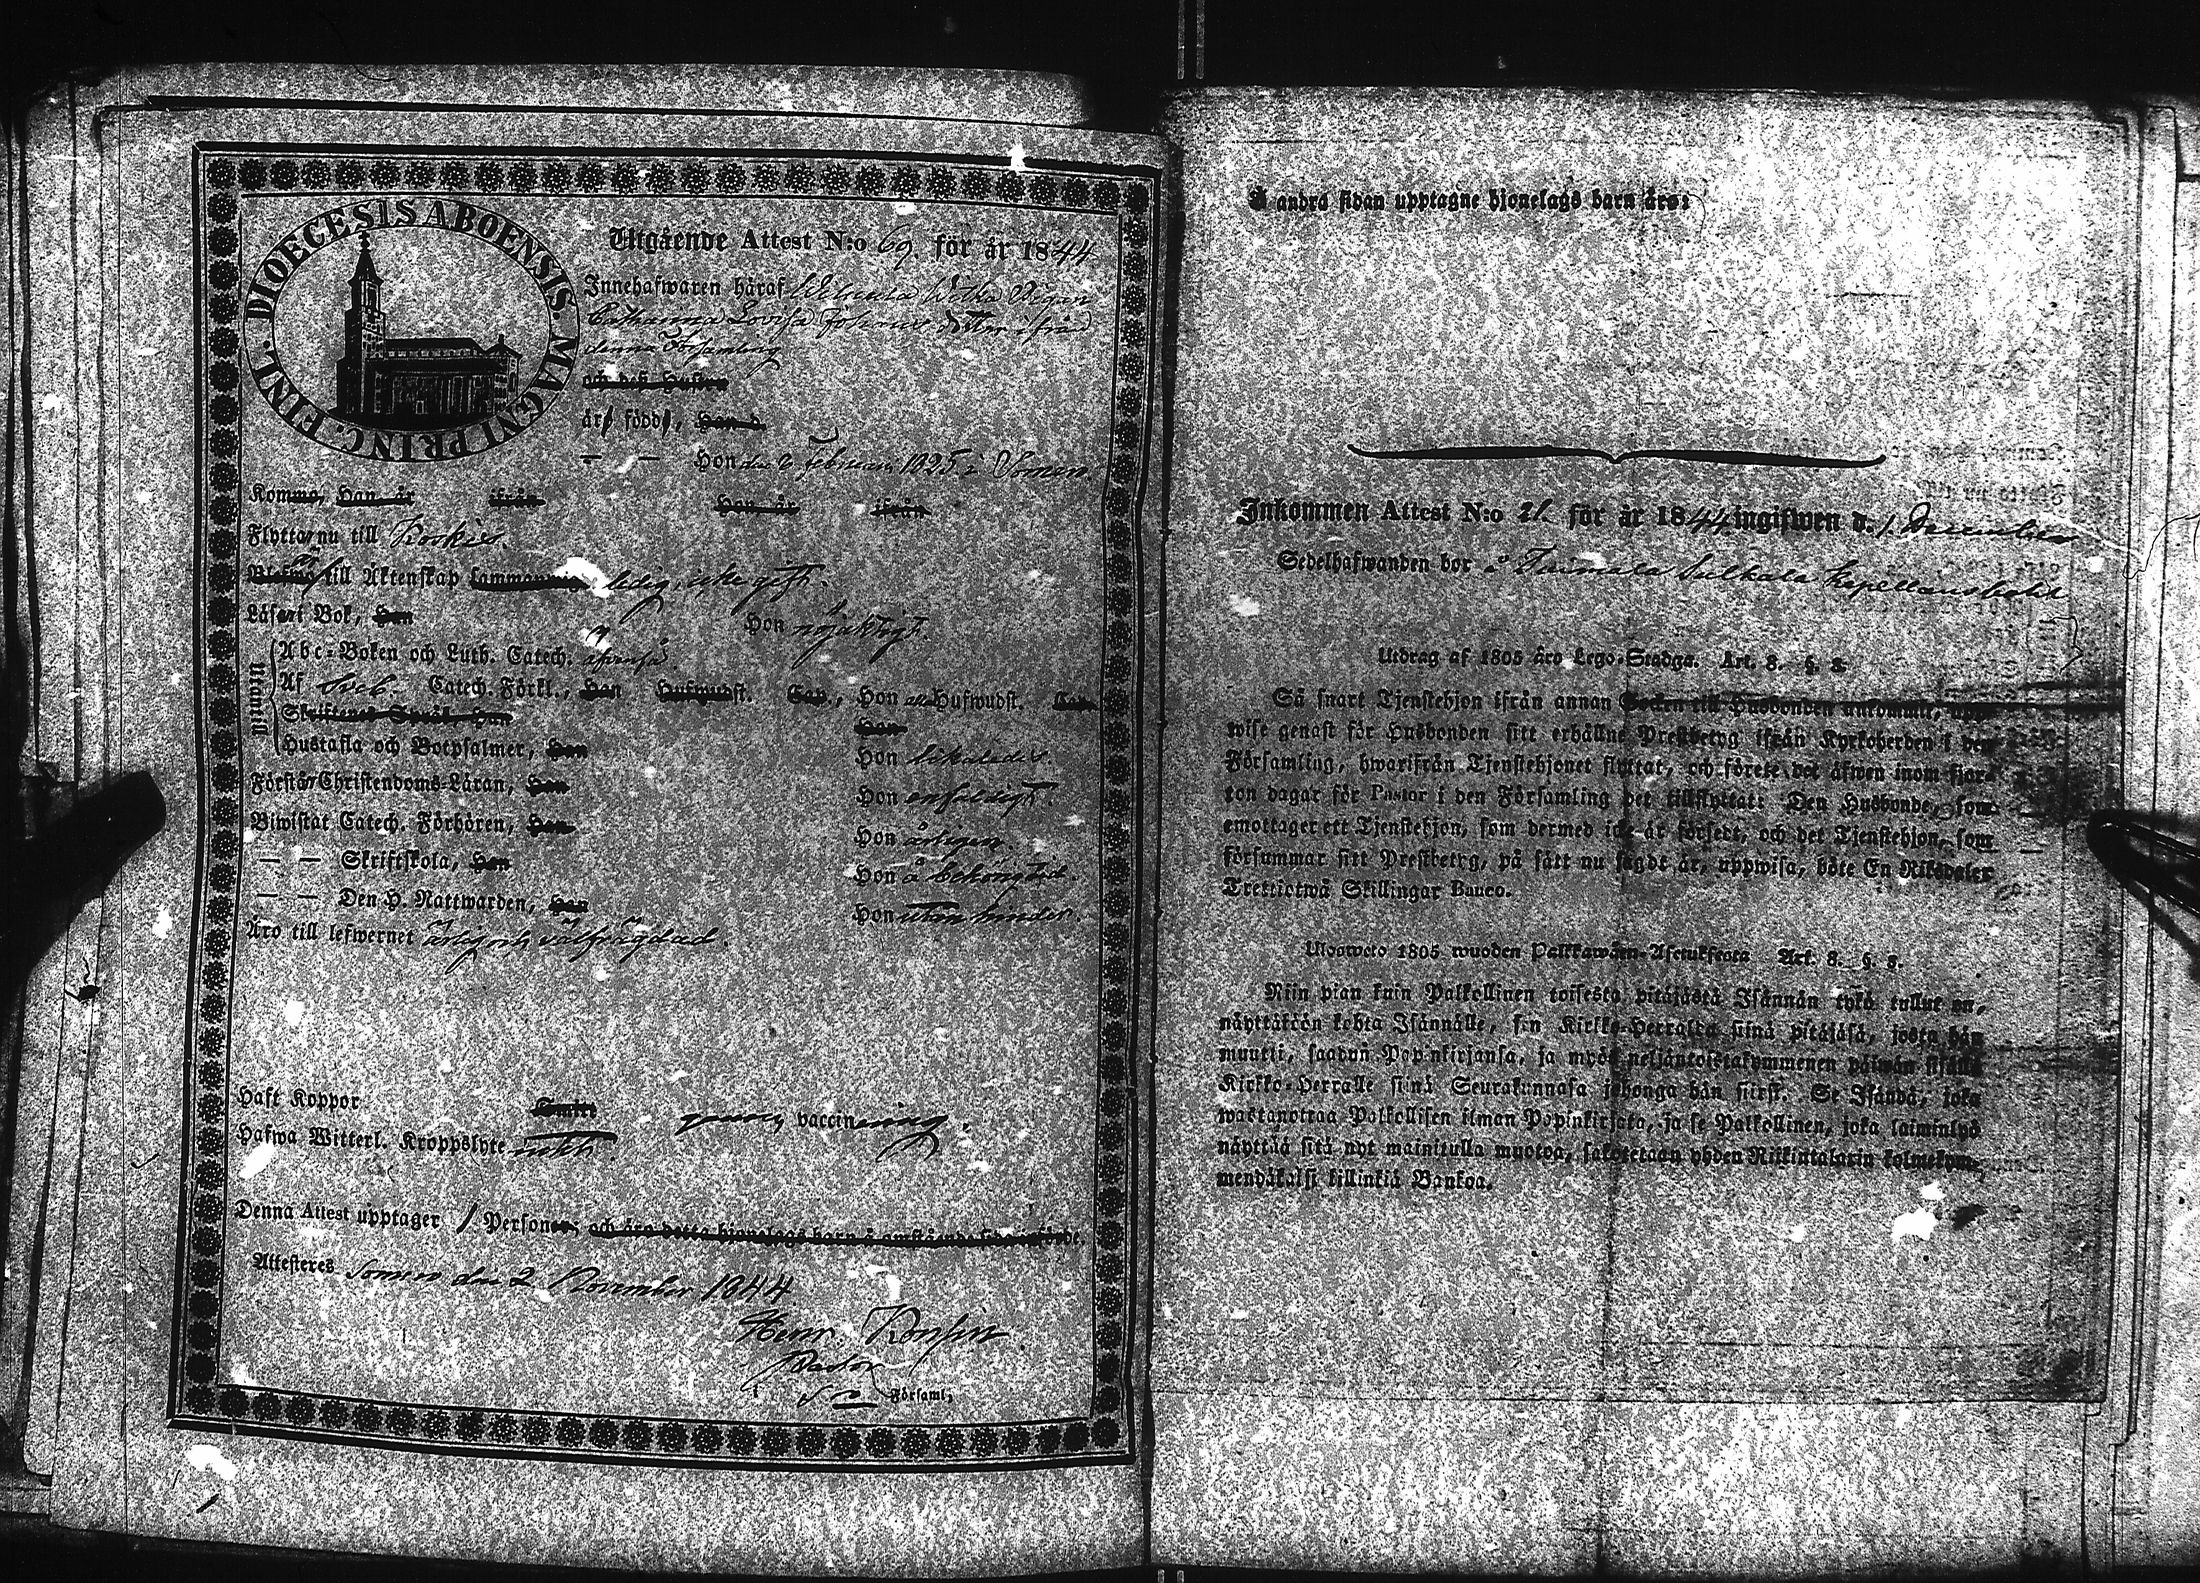 DIOECESIS ABOENSIS. MAGNI PRINC. FINL.
Utgående Attest N:o 69. för år 1844
Innehafwaren häraf
Catharina Lovisa Johans dotter ifrån
denna Församling
och deß Hustru
äro födde, Han d.
— — Hon den 2 Februari 1825 i Somero.
Komma, Han år ifrån Hon år ifrån
Flytta nu till Koskis.
till Äktenskap ledig, icke gift.
Läser i Bok, Han Hon nöjaktigt.
Utantill
Abc-Boken och Luth. Catech. äfvenså.
Af Sveb. Catech. Förkl., Han Hufwudst. Cap., Hon alla Hufwudst. Cap.
Skriftenes Språk, Han Hon
Hustafla och Botpsalmer, Han Hon likaledes.
Förstår Christendoms-Läran, Han Hon enfaldigt.
Biwistat Catech. Förhören, Han Hon årligen.
— — Skriftskola, Han Hon å behörig tid.
— — Den H. Nattwarden, Han Hon utan hinder.
Äro till lefwernet ärlig och välfrägdad.
Haft Koppor genom vaccinering.
Hafwa Witterl. Kroppslyte intet.
Denna Attest upptager 1 Personer; och äro detta hjonelags barn å omstående sida införde.
Attesteres Somero den 2 November 1844
Henr. Konsin
Pastor
Församl.
Å andra sidan upptagne hjonelags barn äro:
Inkommen Attest N:o 21. för år 1844 ingifwen d. 1 December
Sedelhafwanden bor å
Utdrag af 1805 åro Lego-Stadga. Art. 8. §. 3.
Så snart Tjenstehjon ifrån annan Socken till Husbonden ankommit, upp-
wise genast för Husbonden sitt erhållne Prestbetyg ifrån Kyrkoherden i den
Församling, hwarifrån Tjenstehjonet flyttat, och förete det äfwen inom fjor-
ton dagar för Pastor i den Församling det tillflyttat: Den Husbonde, som
emottager ett Tjenstehjon, som dermed icke är försedt, och det Tjenstehjon, som
försummar sitt Prestbetyg, på sätt nu sagdt är, uppwisa, böte En Riksdaler
Trettiotwå Skillingar Banco.
Ulosweto 1805 wuoden Palkkawäen-Asetuksesta Art. 8. §. 3.
Niin pian kuin Palkollinen toisesta pitäjästä Isännän tykö tullut on,
näyttäköön kohta Isännälle, sen Kirkko-Herralta siinä pitäjäsä, josta hän
muutti, saadun Papinkirjansa, ja myös neljäntoistakymmenen päiwän sisällä
Kirkko-Herralle siinä Seurakunnasa johonga hän siirst. Se Isändä, joka
wastanottaa Palkollisen ilman Papinkirjata, ja se Palkollinen, joka laiminlyö
näyttää sitä nyt mainitulla muotoa, sakotetaan yhden Riikintalarin kolmekym-
mendäkaksi killinkiä Bankoa.